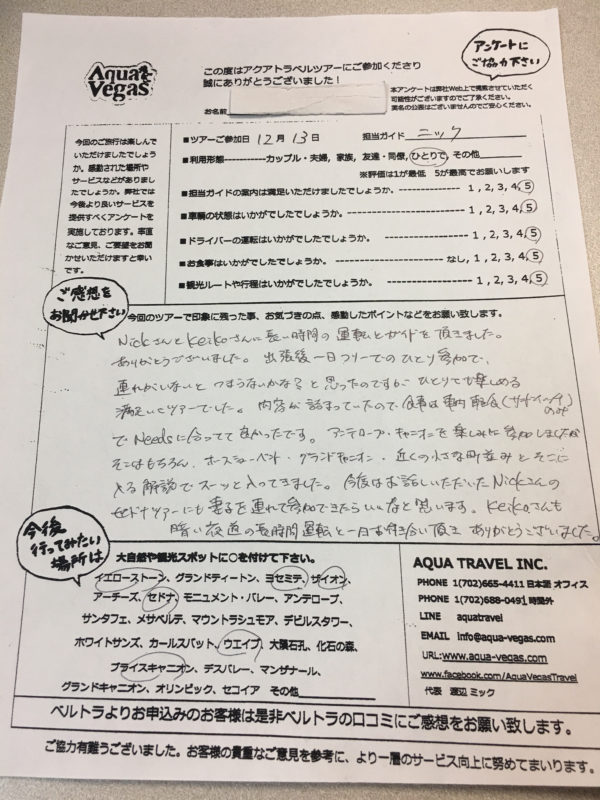 Aqua Vegas
この度はアクアトラベルツアーにご参加くださり
誠にありがとうございました！
アンケートに
ご協力下さい
お名前
本アンケートは弊社Web上で掲載させていただく
可能性がございますのでご了承ください。
実名の公表はございませんのでご安心ください。
今回のご旅行は楽しんで
いただけましたでしょう
か。感動された場所や
サービスなどがありまし
たでしょうか。弊社では
今後より良いサービスを
提供すべくアンケートを
実施しております。率直
なご意見、ご要望をお聞
かせいただけますと幸い
です。
■ツアーご参加日 12月 13日 担当ガイド ニック
■利用形態-----------カップル・夫婦, 家族, 友達・同僚, ひとりで, その他
※評価は1が最低 5が最高でお願いします
■担当ガイドの案内は満足いただけましたでしょうか。 --------------- 1 , 2, 3, 4, 5
■車輌の状態はいかがでしたでしょうか。 --------------- 1 , 2, 3, 4, 5
■ドライバーの運転はいかがでしたでしょうか。 --------------- 1 , 2, 3, 4, 5
■お食事はいかがでしたでしょうか。 --------------- なし, 1, 2, 3, 4, 5
■観光ルートや行程はいかがでしたでしょうか。 --------------- 1, 2, 3, 4, 5
ご感想を
お聞かせ下さい
今回のツアーで印象に残った事、お気づきの点、感動したポイントなどをお願い致します。
NickさんとKeikoさんに長い時間の運転とガイドを頂きました。
ありがとうございました。出張後一日フリーでのひとり参加で、
連れがいないとつまらないかな？と思ったのですが、ひとりでも楽しめる
満足いくツアーでした。内容が詰まっていたので食事は車内軽食(サンドイッチ)
のみ
でNeedsに合ってて良かったです。アンテロープ・キャニオンを楽しみに参加しましたが
そこはもちろん、ホースシューベント・グランドキャニオン・近くの小さな町並みとそこに
入る解説でスーッと入ってきました。今度はお話しいただいたNickさんの
セドナツアーにも妻子を連れて参加できたらいいなと思います。Keikoさんも
暗い夜道の長時間運転と一日お付き合い頂き ありがとうございました。
今後
行ってみたい
場所は
大自然や観光スポットに○を付けて下さい。
イエローストーン、グランドティートン、ヨセミテ、ザイオン、
アーチーズ、セドナ、モニュメント・バレー、アンテロープ、
サンタフェ、メサベルデ、マウントラシュモア、デビルスタワー、
ホワイトサンズ、カールスバット、ウエイブ、大隕石孔、化石の森、
ブライスキャニオン、デスバレー、マンザナール、
グランドキャニオン、オリンピック、セコイア その他
AQUA TRAVEL INC.
PHONE 1(702)665-4411 日本語 オフィス
PHONE 1(702)688-0491 時間外
LINE aquatravel
EMAIL info@aqua-vegas.com
URL:www.aqua-vegas.com
www.facebook.com/AquaVegasTravel
代表 渡辺 ミック
ベルトラよりお申込みのお客様は是非ベルトラの口コミにご感想をお願い致します。
ご協力有難うございました。お客様の貴重なご意見を参考に、より一層のサービス向上に努めてまいります。